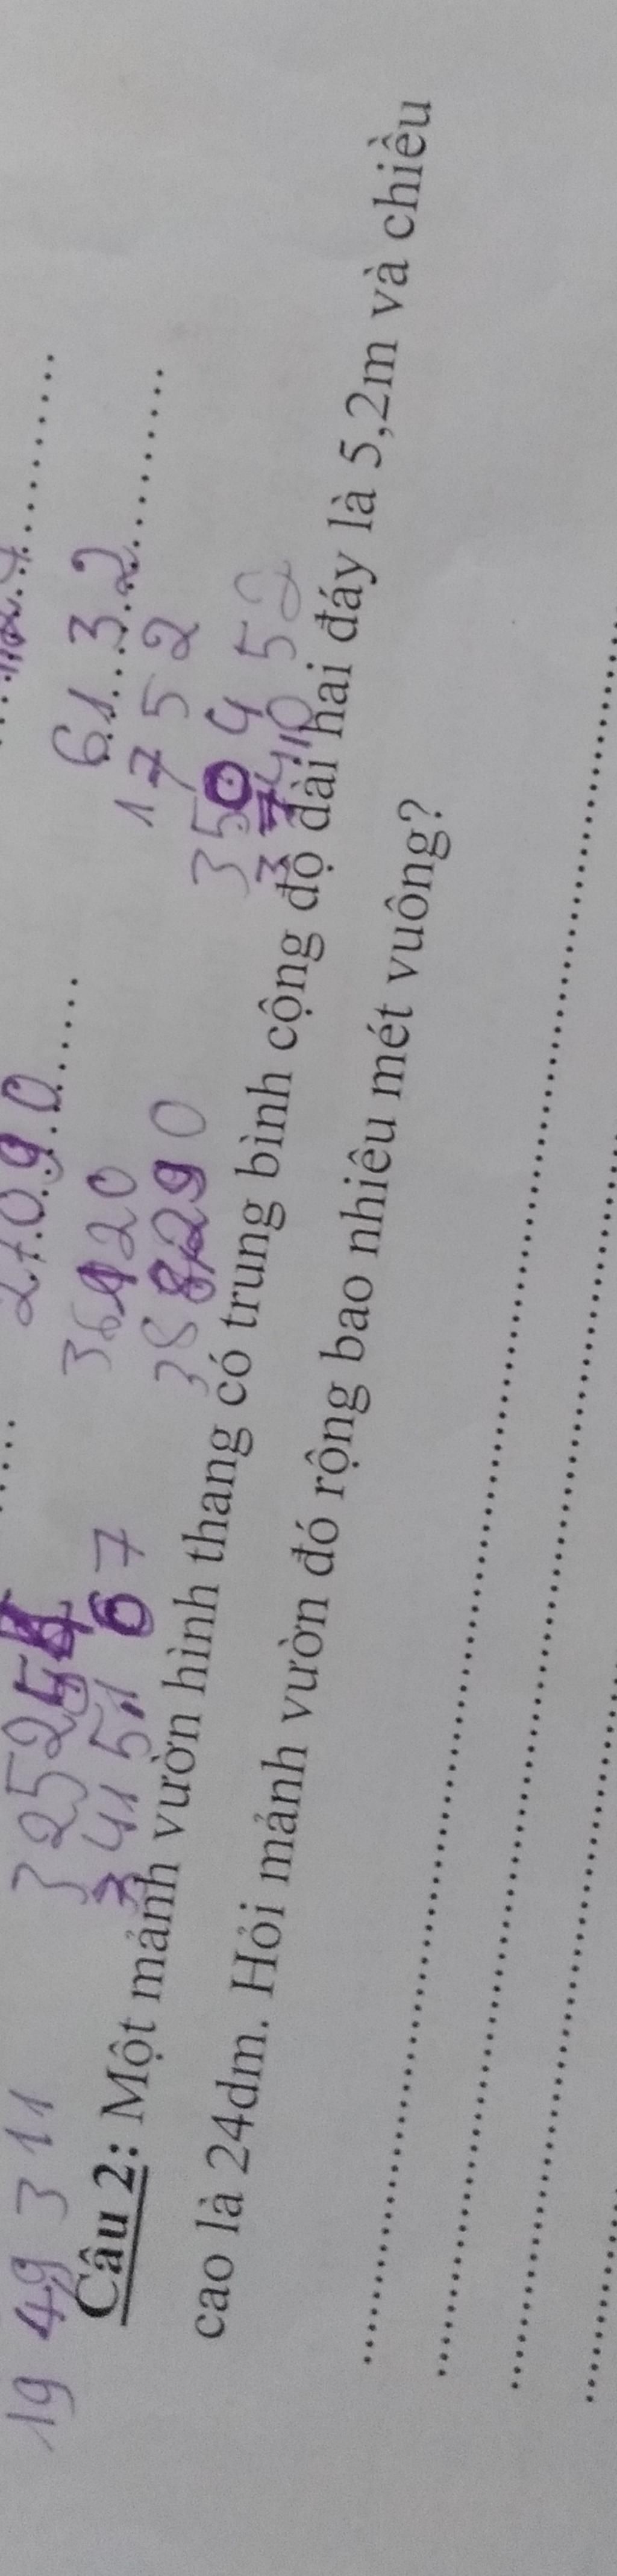 2.7.0.9.0.....
61.3.2.........
3 2 5 2 5
3 6 9 2 0
1 7 5 2
19 4 9 3 11
3 4 1 5,1 6 7
3 8 8,2 9 0
3 5 0 4
5 2
Câu 2: Một mảnh vườn hình thang có trung bình cộng độ dài hai đáy là 5,2m và chiều
cao là 24dm. Hỏi mảnh vườn đó rộng bao nhiêu mét vuông?